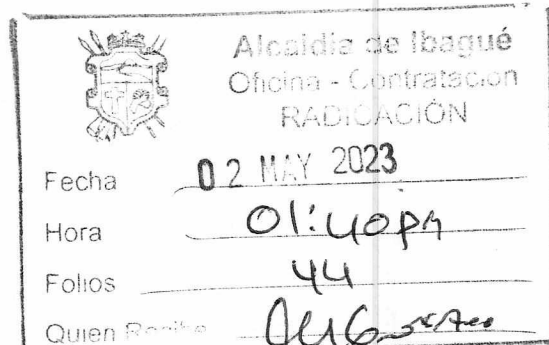 Alcaldia de Ibagué
Oficina - Contratación
RADICACIÓN
Fecha 02 MAY 2023
Hora 01:40PM
Folios 44
Quien Recibe